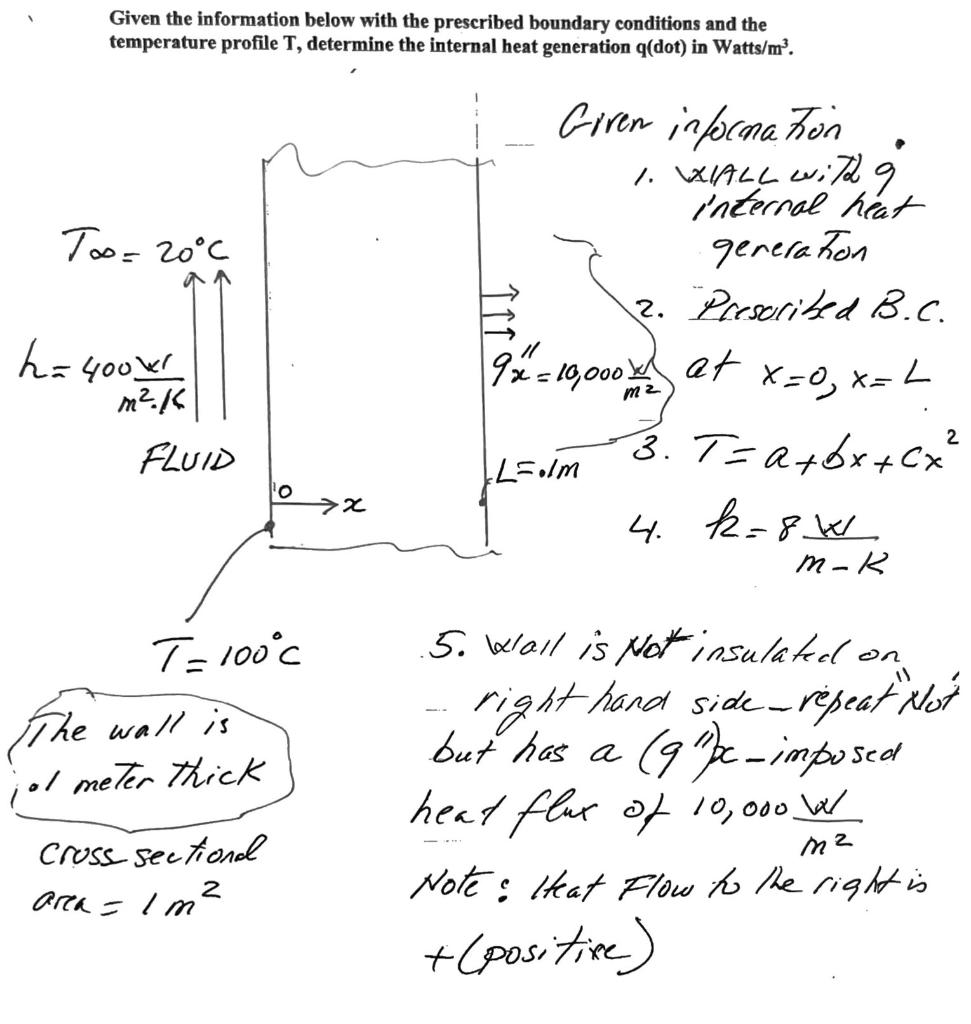 Given the information below with the prescribed boundary conditions and the
temperature profile T, determine the internal heat generation q(dot) in Watts/m³.
Given information
1. WALL with q̇
internal heat
generation
T∞ = 20°C
2. Prescribed B.C.
at x=0, x=L
h = 400 W/m²·K
q″x = 10,000 W/m²
FLUID
3. T = a + bx + cx²
L = .1m
0
x
4. k = 8 W/m-K
T = 100°C
5. Wall is Not insulated on
right hand side - repeat "Not"
but has a (q″)x - imposed
heat flux of 10,000 W/m²
The wall is
.1 meter thick
cross sectional
area = 1 m²
Note: Heat Flow to the right is
+ (positive)